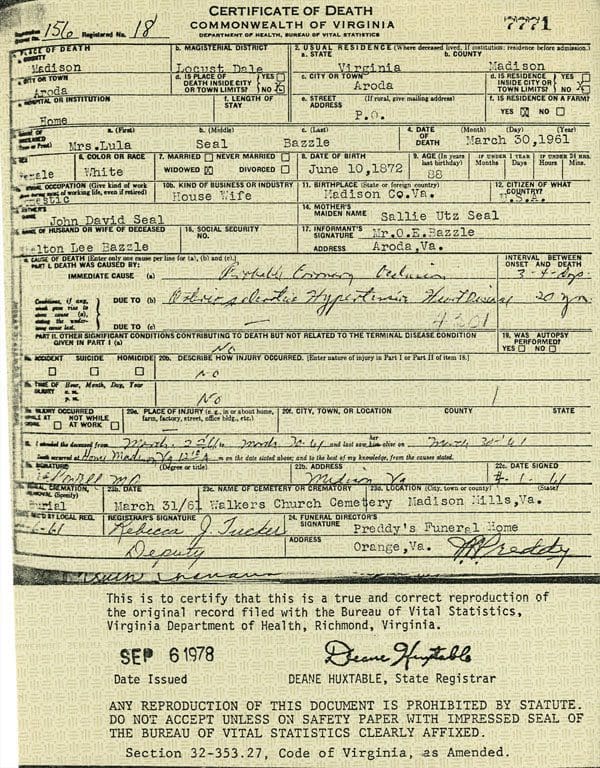 CERTIFICATE OF DEATH
COMMONWEALTH OF VIRGINIA
DEPARTMENT OF HEALTH, BUREAU OF VITAL STATISTICS
156 Registered No. 18
7771
PLACE OF DEATH
a. COUNTY
Madison
b. MAGISTERIAL DISTRICT
Locust Dale
2. USUAL RESIDENCE (Where deceased lived. If institution: residence before admission.)
a. STATE
Virginia
b. COUNTY
Madison
c. CITY OR TOWN
Aroda
d. IS PLACE OF DEATH INSIDE CITY OR TOWN LIMITS? YES NO X
c. CITY OR TOWN
Aroda
d. IS RESIDENCE INSIDE CITY OR TOWN LIMITS? YES NO X
HOSPITAL OR INSTITUTION
Home
f. LENGTH OF STAY
e. STREET ADDRESS (If rural, give mailing address)
P.O.
f. IS RESIDENCE ON A FARM?
YES X NO
a. (First) b. (Middle) c. (Last)
Mrs.Lula Seal Bazzle
4. DATE OF DEATH (Month) (Day) (Year)
March 30,1961
6. COLOR OR RACE
White
7. MARRIED NEVER MARRIED
WIDOWED X DIVORCED
8. DATE OF BIRTH
June 10,1872
9. AGE (In years last birthday)
88
IF UNDER 1 YEAR
Months Days
IF UNDER 24 HRS.
Hours Mins.
USUAL OCCUPATION (Give kind of work during most of working life, even if retired)
10b. KIND OF BUSINESS OR INDUSTRY
House Wife
11. BIRTHPLACE (State or foreign country)
Madison Co.Va.
12. CITIZEN OF WHAT COUNTRY?
U.S.A.
John David Seal
14. MOTHER'S MAIDEN NAME
Sallie Utz Seal
NAME OF HUSBAND OR WIFE OF DECEASED
alton Lee Bazzle
16. SOCIAL SECURITY NO.
17. INFORMANT'S SIGNATURE
Mr.O.E.Bazzle
ADDRESS
Aroda,Va.
CAUSE OF DEATH [Enter only one cause per line for (a), (b), and (c).]
PART I. DEATH WAS CAUSED BY:
INTERVAL BETWEEN ONSET AND DEATH
IMMEDIATE CAUSE (a) Probable Coronary Occlusion
Conditions, if any, which gave rise to above cause (a), stating the underlying cause last.
DUE TO (b) Hypertensive Heart Disease 20 yrs
DUE TO (c) —
PART II. OTHER SIGNIFICANT CONDITIONS CONTRIBUTING TO DEATH BUT NOT RELATED TO THE TERMINAL DISEASE CONDITION GIVEN IN PART I (a)
No
19. WAS AUTOPSY PERFORMED?
YES NO
ACCIDENT SUICIDE HOMICIDE
20b. DESCRIBE HOW INJURY OCCURRED. (Enter nature of injury in Part I or Part II of item 18.)
No
TIME OF INJURY Hour, Month, Day, Year
a. m.
p. m.
No
INJURY OCCURRED
WHILE AT NOT WHILE AT WORK
20e. PLACE OF INJURY (e.g., in or about home, farm, factory, street, office bldg., etc.)
20f. CITY, TOWN, OR LOCATION COUNTY STATE
I attended the deceased from March to March 30 61 and last saw her alive on March
Death occurred at Home Madison Va on the date stated above; and to the best of my knowledge, from the causes stated.
SIGNATURE (Degree or title)
22b. ADDRESS
Madison Va
22c. DATE SIGNED
BURIAL, CREMATION, REMOVAL (Specify)
Burial
23b. DATE
March 31/61
23c. NAME OF CEMETERY OR CREMATORY
Walkers Church Cemetery
23d. LOCATION (City, town or county) (State)
Madison Mills,Va.
REC'D BY LOCAL REG.
REGISTRAR'S SIGNATURE
Rebecca J. Tucker
Deputy
24. FUNERAL DIRECTOR'S SIGNATURE
Preddy's Funeral Home
ADDRESS
Orange,Va.
Preddy
This is to certify that this is a true and correct reproduction of
the original record filed with the Bureau of Vital Statistics,
Virginia Department of Health, Richmond, Virginia.
SEP 6 1978
Deane Huxtable
Date Issued
DEANE HUXTABLE, State Registrar
ANY REPRODUCTION OF THIS DOCUMENT IS PROHIBITED BY STATUTE.
DO NOT ACCEPT UNLESS ON SAFETY PAPER WITH IMPRESSED SEAL OF
THE BUREAU OF VITAL STATISTICS CLEARLY AFFIXED.
Section 32-353.27, Code of Virginia, as Amended.